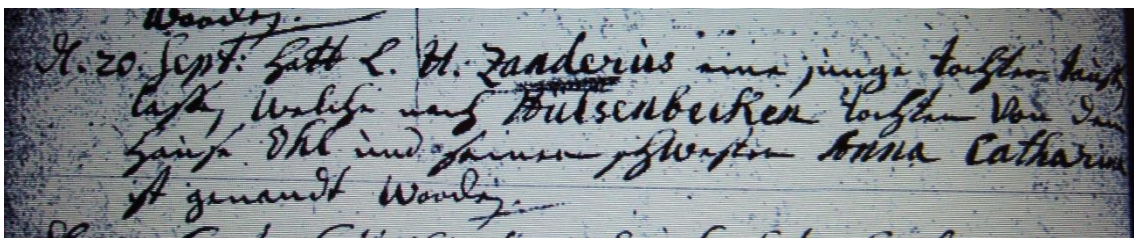 Worden.
d. 20. Sept: hatt L. H. Zanderius eine junge tochter tauffen
laßen, welche nach Hulsenbecken tochter von dem
Hause Ohl und seiner schwester Anna Catharina
ist genandt Worden.